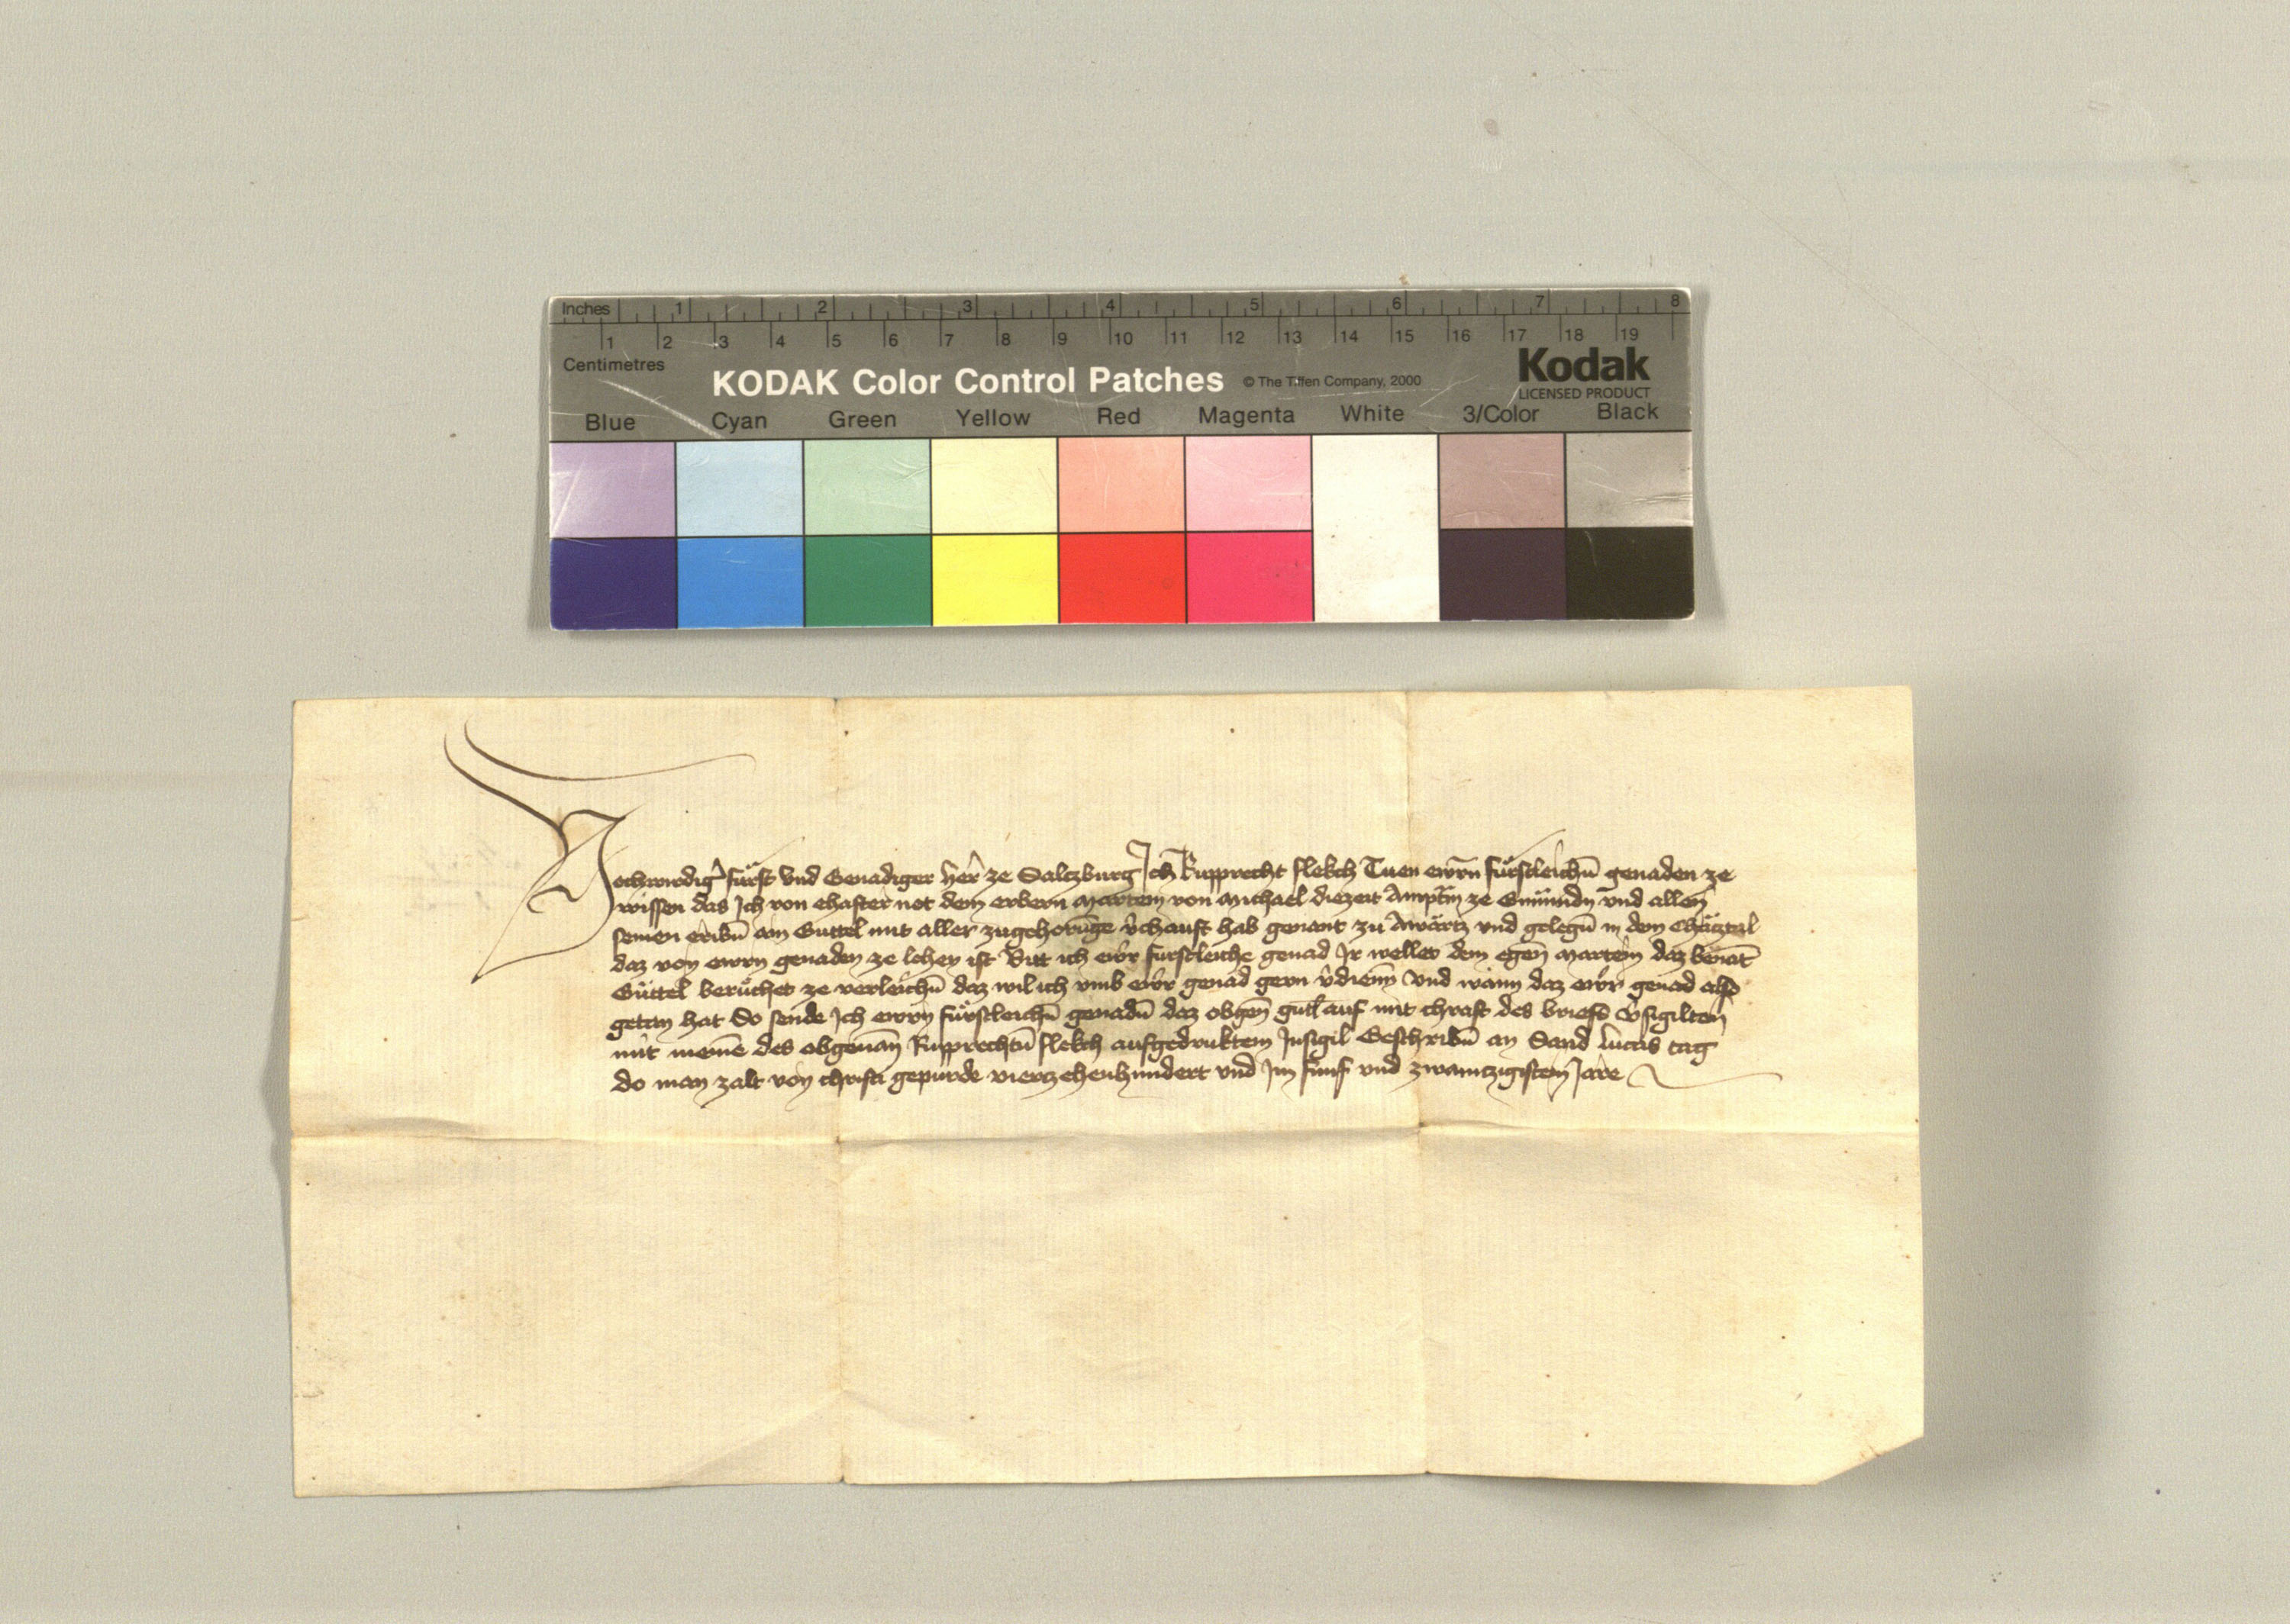 Inches 1 2 3 4 5 6 7 8
1 2 3 4 5 6 7 8 9 10 11 12 13 14 15 16 17 18 19
Centimetres
KODAK Color Control Patches © The Tiffen Company, 2000 Kodak
LICENSED PRODUCT
Blue Cyan Green Yellow Red Magenta White 3/Color Black
Hochwirdig' fürst vnd Genadiger her' ze Saltzburg Ich Rupprecht flekch Tuen ewrn fürstleichn̄ genaden ze
wissen das Ich von ehafter not dem erbern Martein von Michael diezeit Amptm̄ ze Gmündn vnd allen
seinen eribn̄ ain Guttel mit aller zugehorūge v'chauft hab genant zu Awärtz vnd gelegn̄ in dem Chätztal
daz von ewrn genaden ze lehen ist Bitt ich ew'r furstleiche genad Ir wellet dem egen̄ Martein daz benāt
Güttel berüchet ze verleichn̄ daz wil ich vmb ew'r genad gern v'dienn̄ vnd wann daz ew'r genad also
getan hat So sende Ich ewrn fürstleichn̄ genadn̄ daz obgen̄ gutl auf mit chraft des briefs v'sigilten
mit meinē des obgenan̄ Rupprechtn̄ flekch aufgedruktem Insigil Geschribn̄ an Sand Lucas tag
do man zalt von christi gepürde vierzehenhundert vnd Im fünf vnd zwaintzigisten Jare